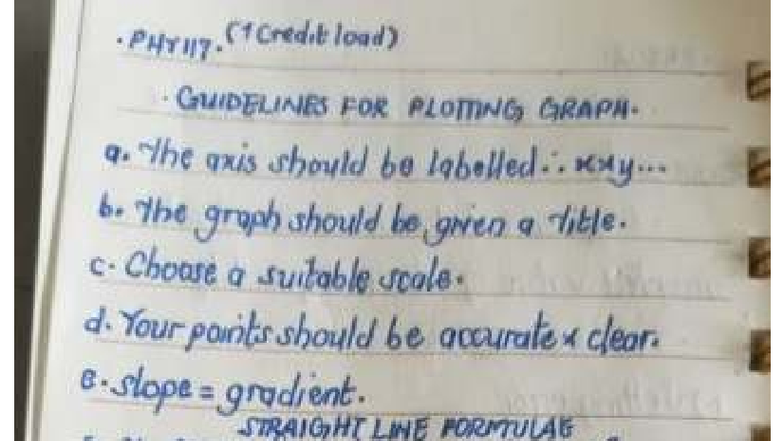 . PHY 117. (1 Credit load)
. GUIDELINES FOR PLOTTING GRAPH.
a. The axis should be labelled ∴ x x y...
b. The graph should be given a title.
c. Choose a suitable scale.
d. Your points should be accurate x clear.
e. slope = gradient.
STRAIGHT LINE FORMULAE